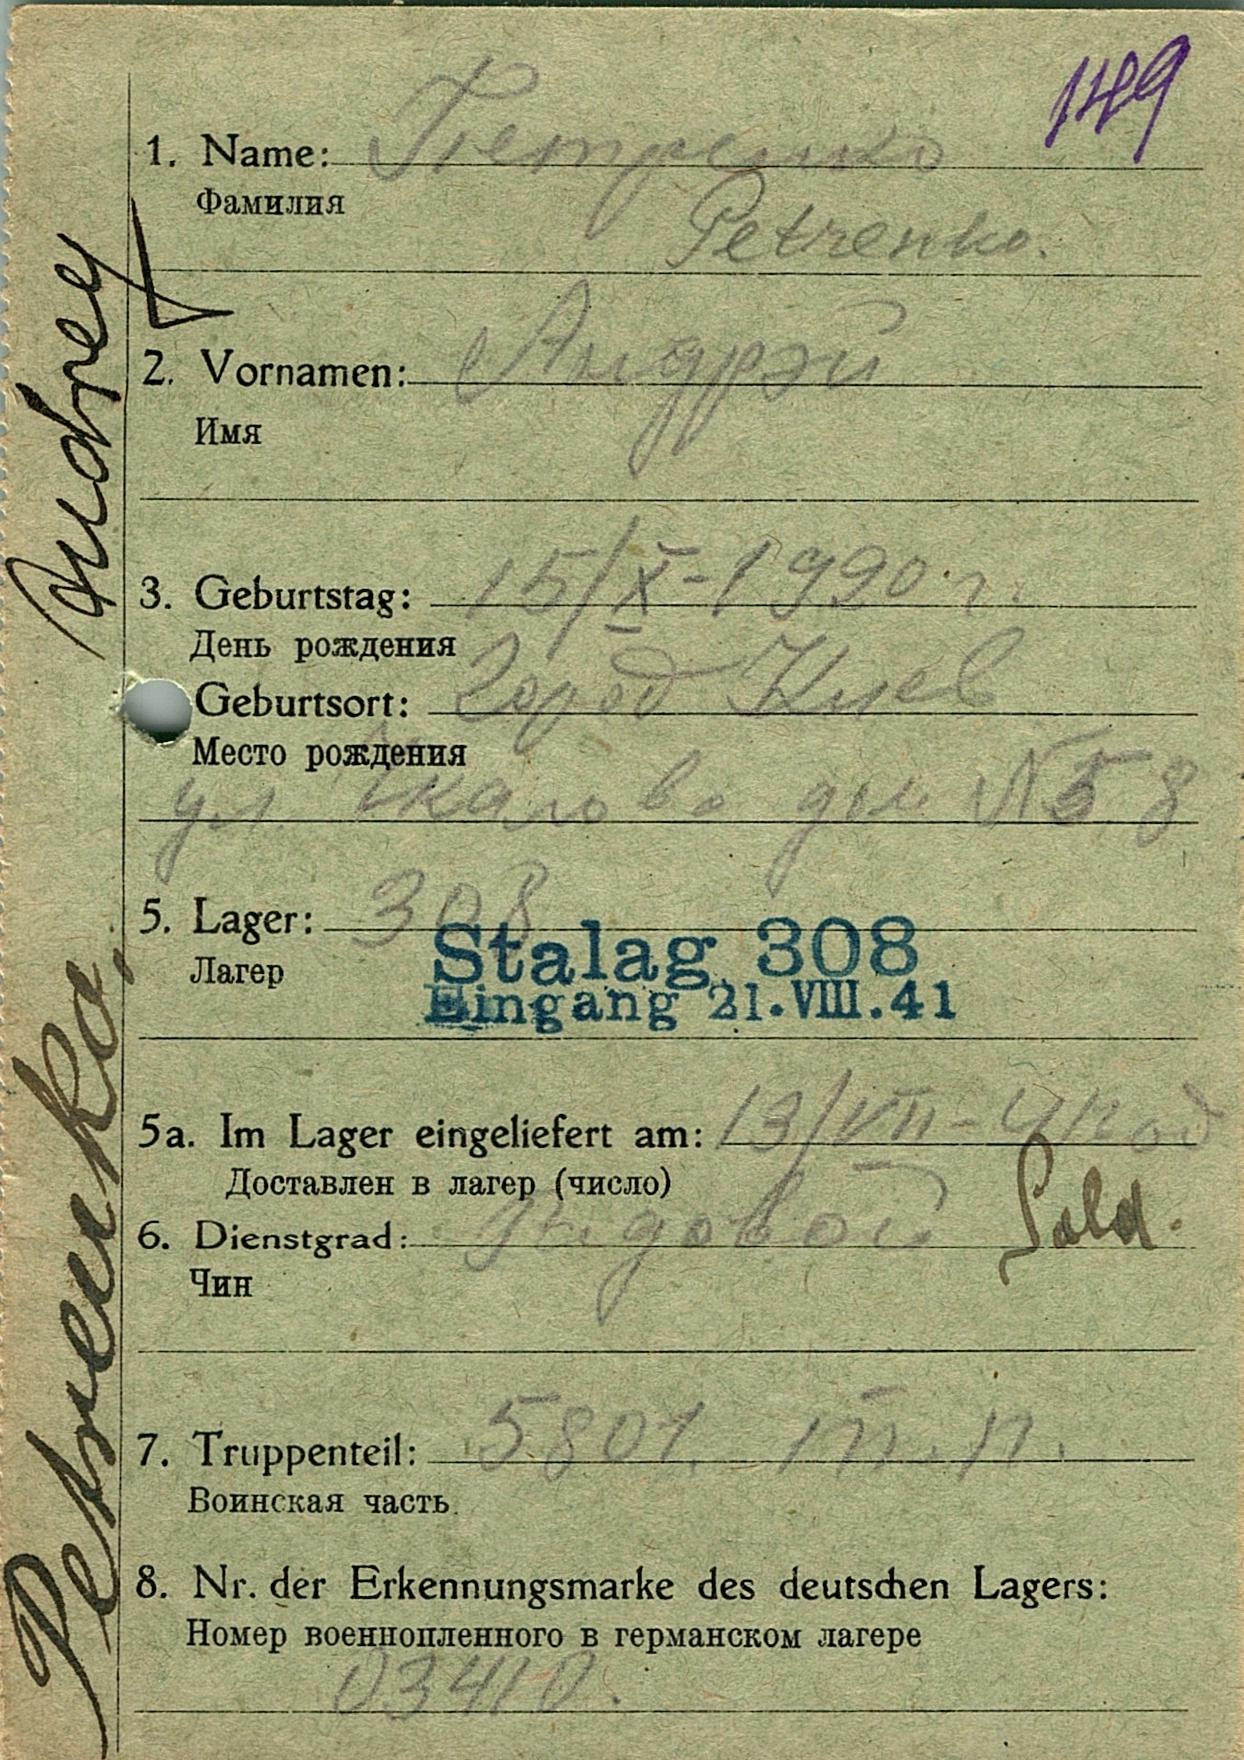 149
1. Name: Петренко
Фамилия
Petrenko.
2. Vornamen: Андрэй
Имя
3. Geburtstag: 15/X-1990 г.
День рождения
Geburtsort: Город Киев
Место рождения
ул. Чкалово дом N 58
5. Lager: 308
Stalag 308
Лагер
Eingang 21.VIII.41
5a. Im Lager eingeliefert am: 13/VII-41 год
Доставлен в лагер (число)
6. Dienstgrad: Рядовой Sold.
Чин
7. Truppenteil: 5801. п.
Воинская часть
8. Nr. der Erkennungsmarke des deutschen Lagers:
Номер военнопленного в германском лагере
03410.
Petrenko, Andrey